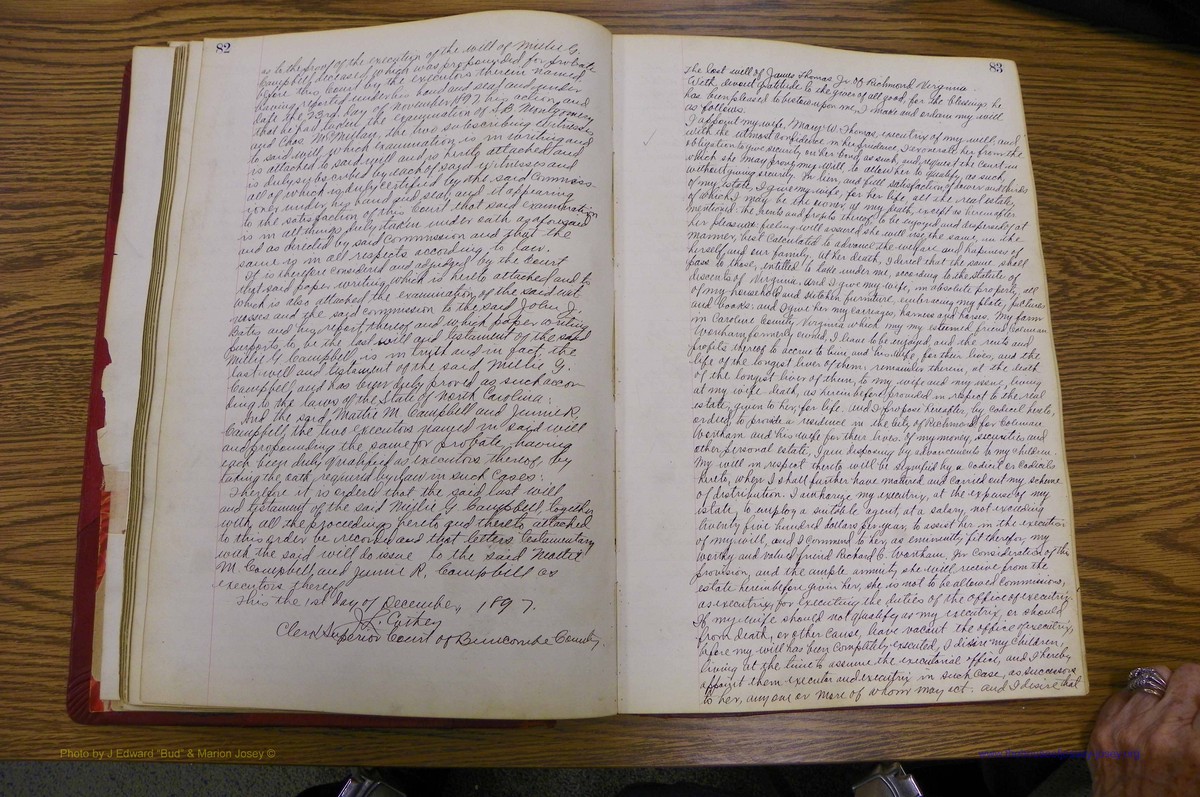 82
as to the proof of the execution of the will of Millie G.
Campbell, deceased, which was propounded for probate
before this Court by the executors therein named
having reported under his hand and seal and under
date the 23rd day of November 1897 his action and
that he had taken the examination of S.B. Montgomery
and Chas. McMillan, the two subscribing witnesses
to said will, which examination is in writing and
is attached to said will and is hereto attached and
is duly subscribed by each of said witnesses and
all of which is duly certified by the said Commis-
sioner under his hand and seal, and it appearing
to the satisfaction of this Court that said examination
is in all things duly taken under oath as aforesaid
and as directed by said commission and that the
same is in all respects according to law.
It is therefore considered and adjudged by the Court
that said paper writing which is hereto attached and to
which is also attached the examination of the said wit-
nesses and the said commission to the said John J.
Cates and his report thereof and which paper writing
purports to be the last will and testament of the said
Millie G. Campbell, is in truth and in fact the
last will and testament of the said Millie G.
Campbell, and has been duly proved as such accor-
ding to the laws of the State of North Carolina:
And the said Mattie M. Campbell and Junnie R.
Campbell the two executors named in said will
and propounding the same for probate, having
each been duly qualified as executors thereof, by
taking the oath required by law in such cases:
Therefore it is ordered that the said last will
and testament of the said Millie G. Campbell, together
with all the proceedings hereto and thereto attached
to this order be recorded and that letters testamentary
with the said will do issue to the said Mattie
M. Campbell and Junnie R. Campbell as
executors thereof.
This the 1st day of December, 1897.
J. L. Cathey
Clerk Superior Court of Buncombe County.
83
The last will of James Thomas Jr of Richmond Virginia.
With devout gratitude to the giver of all good, for the blessings he
has been pleased to bestow upon me, I make and ordain my will
as follows.
I appoint my wife, Mary W. Thomas, executrix of my will, and
with the utmost confidence in her prudence, I exonerate her from the
obligation to give security on her bond as such, and request the court in
which she may prove my will, to allow her to qualify, as such,
without giving security. In lieu, and full satisfaction of dower and thirds
of my estate, I give my wife, for her life, all the real estate,
of which I may be the owner at my death, except as hereinafter
mentioned. the rents and profits thereof to be enjoyed and disposed of at
her pleasure: feeling well assured she will use the same, in the
manner, best calculated to advance the welfare and happiness of
herself and our family. At her death, I direct that the same shall
pass to those, entitled to take under me, according to the statute of
descents of Virginia. And I give my wife, in absolute property, all
of my household and kitchen furniture, embracing my plate, pictures
and books: and I give her my carriages, harness and horses. My farm
in Caroline County, Virginia which my esteemed friend Coleman
Wortham formerly owned, I leave to be enjoyed and the rents and
profits thereof to accrue to him, and his wife, for their lives, and the
life of the longest liver of them: remainder therein, at the death
of the longest liver of them, to my wife and my issue, living
at my wife's death, as hereinbefore provided in respect to the real
estate, given to her, for life. And I propose hereafter, by codicil hereto,
to provide a residence in the City of Richmond for Coleman
Wortham and his wife for their lives. of my money, securities and
other personal estate, I am disposing by advancements to my children.
My will in respect thereto will be signified by a codicil or codicils
hereto, when I shall further have matured and carried out my scheme
of distribution. I authorize my executrix, at the expense of my
estate, to employ a suitable agent at a salary, not exceeding
twenty five hundred dollars per year, to assist her in the execution
of my will, and I commend to her, as eminently fit therefor, my
worthy and valued friend Richard C. Wortham. In consideration of this
provision, and the ample annuity she will receive from the
estate hereinbefore given her, she is not to be allowed commissions,
as executrix, for executing the duties of the office of executrix.
If my wife should not qualify as my executrix, or should
from death, or other cause, leave vacant the office of executrix,
before my will has been completely executed, I desire my children,
living at the time to assume the executorial office, and I hereby
appoint them executor and executrix in such case, as successors
to her, any one or more of whom may act. and I desire that
Photo by J Edward "Bud" & Marion Josey ©